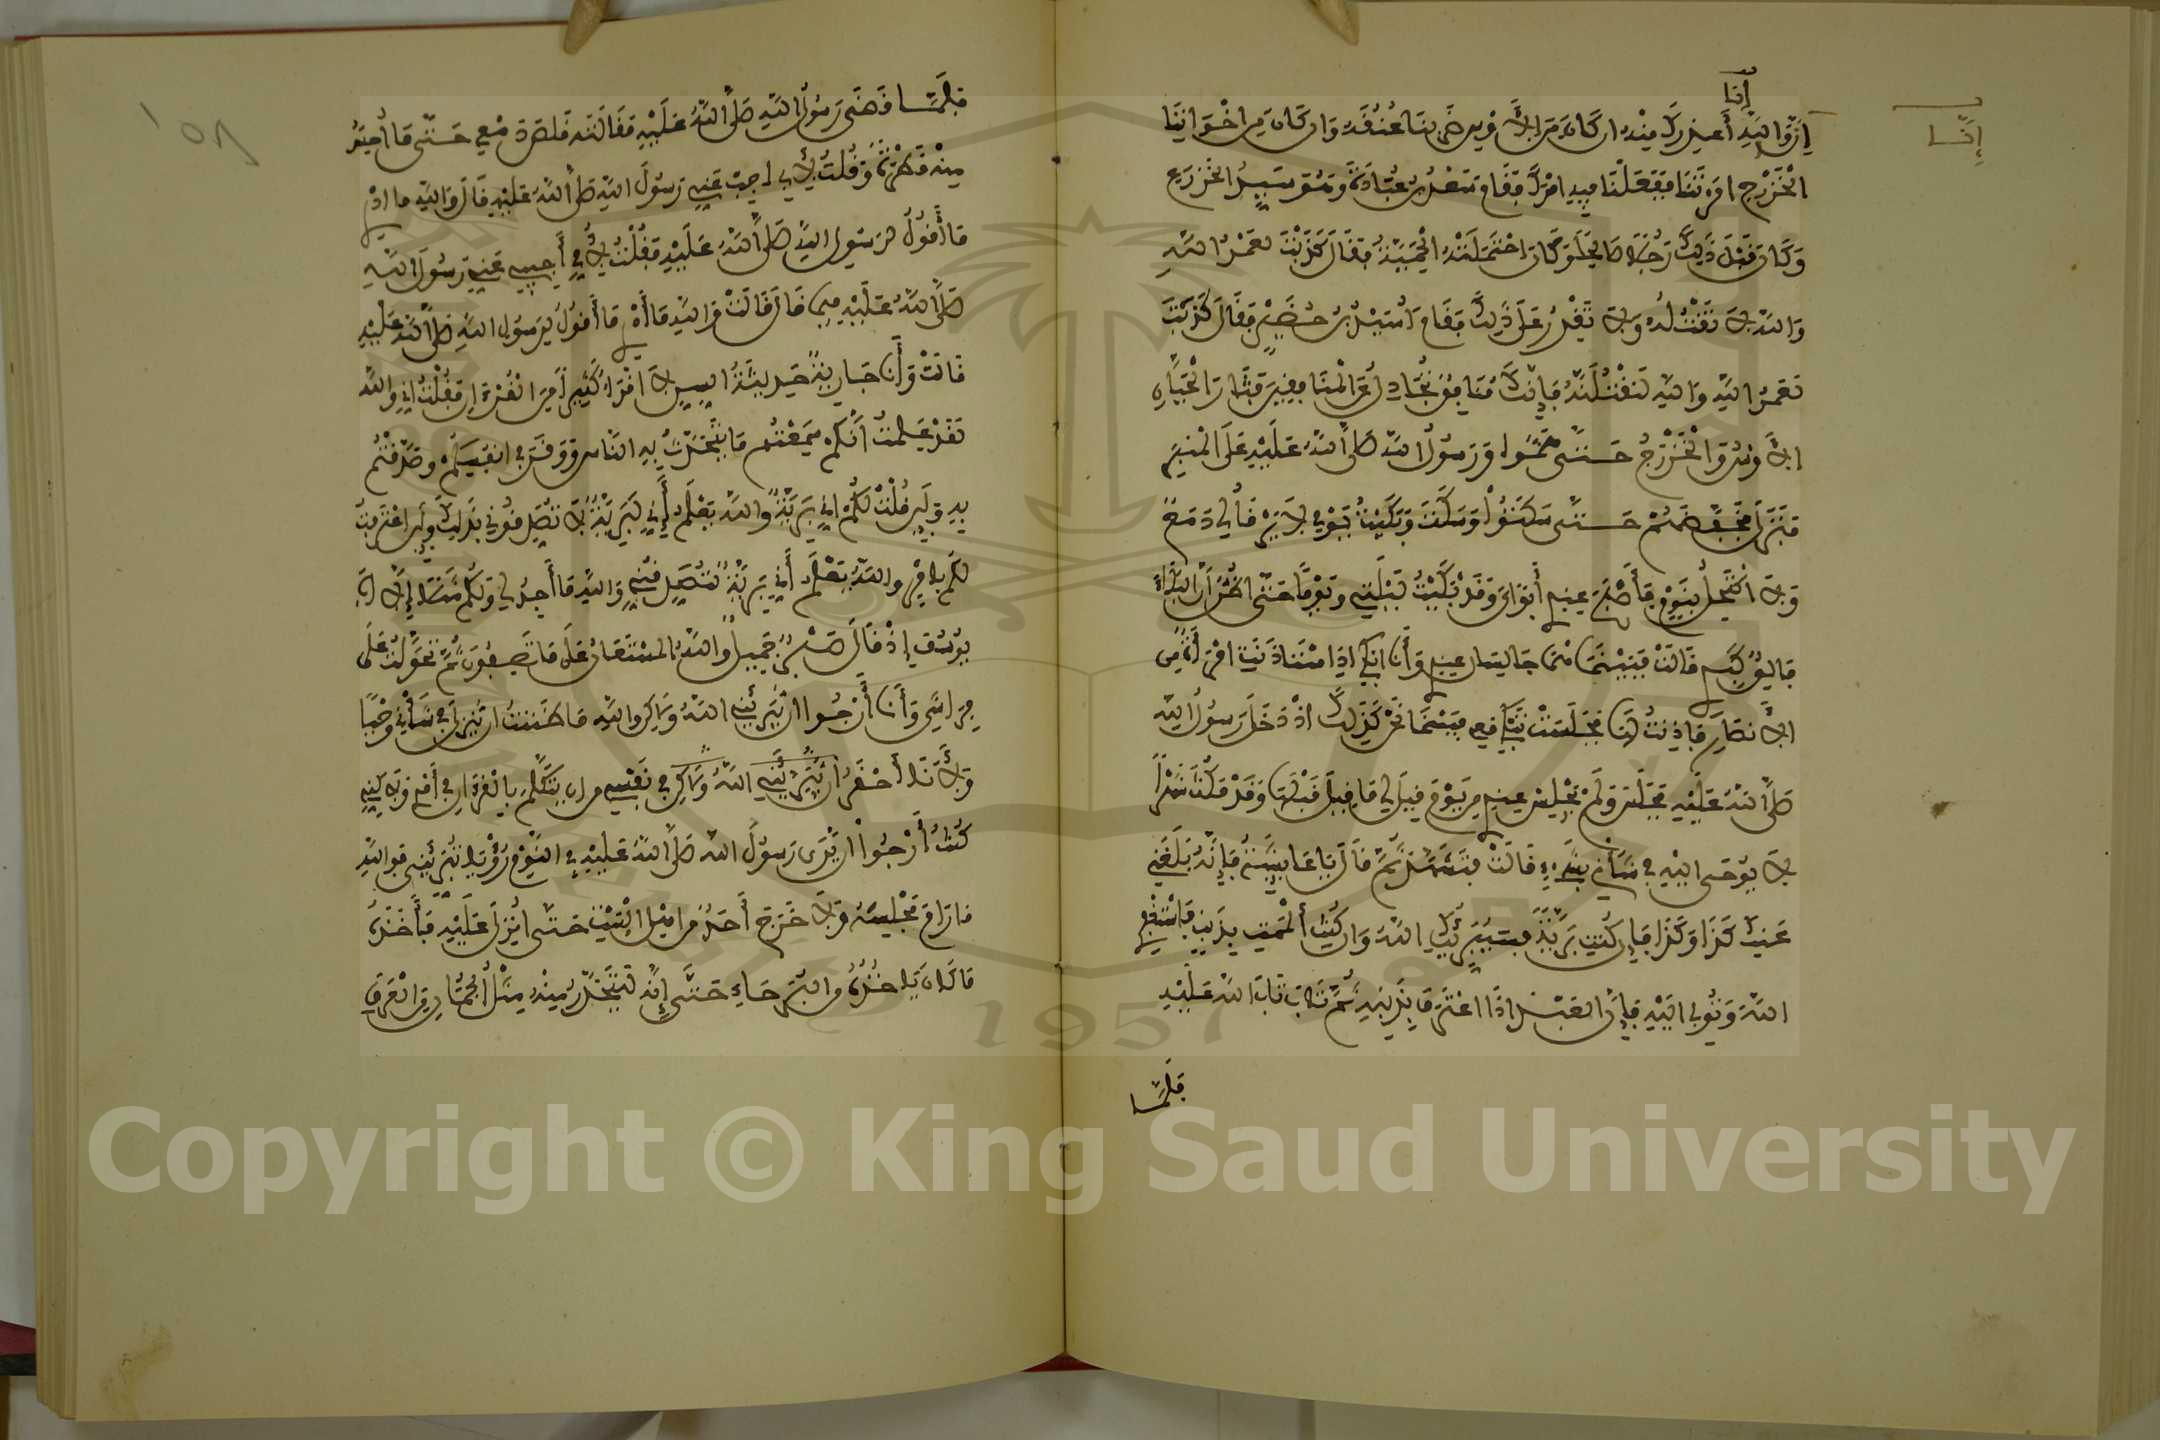 أنا
إنا
أنا والله أعذرك منه ان كان من الأوس ضربنا عنقه وان كان من اخواننا
الخزرج امرتنا ففعلنا فيه امرك فقام سعد بن عبادة وهو سيد الخزرج
وكان قبل ذلك رجلا صالحا وكان احتملته الحمية فقال كذبت لعمر الله
والله لا تقتله ولا تقدر على ذلك فقام أسيد بن حضير فقال كذبت
لعمر الله والله لنقتلنه فإنك منافق تجادل عن المنافقين فثار الحيان
الأوس والخزرج حتى هموا ورسول الله صلى الله عليه على المنبر
فنزل فخفضهم حتى سكتوا وسكت وبكيت يومي لا يرقأ لي دمع
ولا اكتحل بنوم فأصبح عندي أبواي وقد بكيت ليلتي ويوما حتى اظن أن البكاء
فالق كبدي قالت فبينما هما جالسان عندي وأنا ابكي اذا استأذنت امرأة من
الأنصار فاذنت لها فجلست تبكي معي فبينما نحن كذلك اذ دخل رسول الله
صلى الله عليه فجلس ولم يجلس عندي من يوم قيل لي ما قيل قبلها وقد مكث شهرا
لا يوحى اليه في شأني بشيء قالت فتشهد ثم قال يا عايشة فإنه بلغني
عنك كذا وكذا فإن كنت بريئة فسيبرئك الله وان كنت ألممت بذنب فاستغفري
الله وتوبي اليه فإن العبد اذا اعترف بذنبه ثم تاب تاب الله عليه
فلما
١٥٨
فلما قضى رسول الله صلى الله عليه مقالته قلص دمعي حتى ما أحس
منه قطرة وقلت لأبي اجب عني رسول الله صلى الله عليه قال والله ما ادري
ما أقول لرسول الله صلى الله عليه فقلت لأمي أجيبي عني رسول الله
صلى الله عليه فيما قال قالت والله ما أدري ما أقول لرسول الله صلى الله عليه
قالت وأنا جارية حديثة السن لا اقرأ كثيرا من القرءان فقلت اني والله
لقد علمت أنكم سمعتم ما يتحدث به الناس ووقر في انفسكم وصدقتم
به ولين قلت لكم اني بريئة والله يعلم إني لبريئة لا تصدقوني بذلك ولين اعترفت
لكم بأمر والله يعلم أني بريئة لتصدقني والله ما أجد لي ولكم مثلا إلا أبا
يوسف إذ قال صبر جميل والله المستعان على ما تصفون ثم تحولت على
فراشي وأنا أرجوا ان يبرئني الله ولاكن والله ما ظننت ان ينزل في شأني وحيا
ولأنا أحقر أن يبرئني الله ولاكن في نفسي من ان يتكلم بالقرءان في أمري ولاكنني
كنت أرجوا ان يرى رسول الله صلى الله عليه في النوم رؤيا يبرئني فوالله
ما رام مجلسه ولا خرج أحد من اهل البيت حتى أنزل عليه فأخذه
ما كان يأخذه من البرحاء حتى إنه ليتحدر منه مثل الجمان من العرق
Copyright © King Saud University
1957